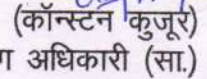 (कॉन्स्टन कुजूर)
ग अधिकारी (सा.)